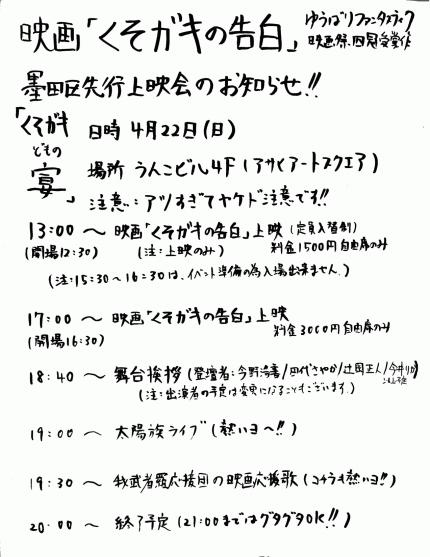 映画「くそガキの告白」ゆうばりファンタスティック
映画祭・四冠受賞作
墨田区先行上映会のお知らせ!!
「くそガキ
どもの
宴」
日時 4月22日(日)
場所 うんこビル4F(アサヒアートスクエア)
注意:アツすぎてヤケド注意です!!
13:00〜映画「くそガキの告白」上映(定員入替制)
(開場12:30) (注:上映のみ) 料金1500円自由席のみ
(注:15:30〜16:30は、イベント準備の為入場出来ません。)
17:00〜映画「くそガキの告白」上映
(開場16:30) 料金3000円自由席のみ
18:40〜舞台挨拶(登壇者:今野浩喜/田代さやか/辻岡正人/今井りか
(注:出演者の予定は変更になることもございます。)
19:00〜太陽族ライブ(熱いヨ〜!!)
19:30〜我武者羅應援団の映画応援歌(コチラも熱いヨ!!)
20:00〜終了予定(21:00まではグダグダOK!!)